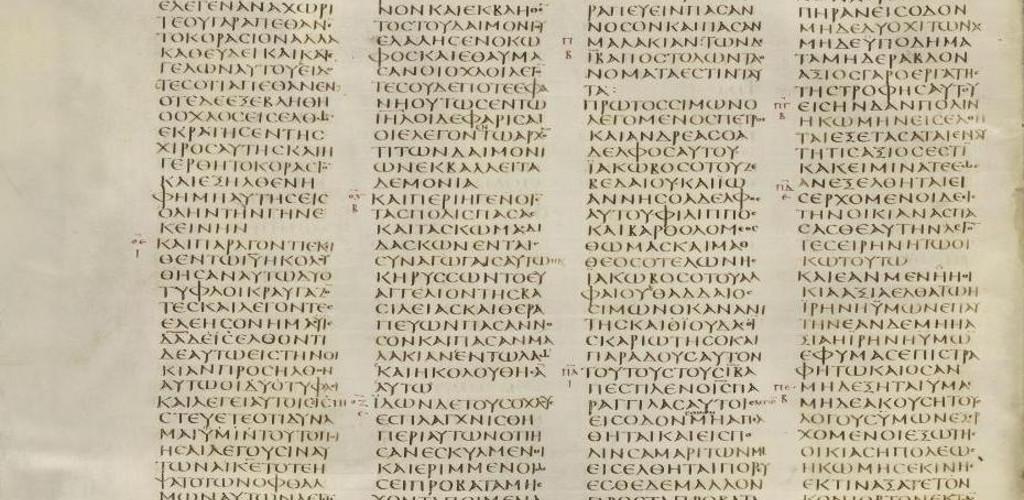 ΕΛΕΓΕΝΑΝΑΧΩΡΙ
ΤΕΟΥΓΑΡΑΠΕΘΑΝ
ΤΟΚΟΡΑϹΙΟΝΑΛΛΑ
ΚΑΘΕΥΔΕΙΚΑΙΚΑΤΕ
ΓΕΛΩΝΑΥΤΟΥΕΙΔΟ
ΤΕϹΟΤΙΑΠΕΘΑΝΕΝ
ΟΤΕΔΕΕΞΕΒΛΗΘΗ
ΟΟΧΛΟϹΕΙϹΕΛΘΩ
ΕΚΡΑΤΗϹΕΝΤΗϹ
ΧΙΡΟϹΑΥΤΗϹΚΑΙΗ
ΓΕΡΘΗΤΟΚΟΡΑϹΙΟ
ΚΑΙΕΞΗΛΘΕΝΗ
ΦΗΜΗΑΥΤΗϹΕΙϹ
ΟΛΗΝΤΗΝΓΗΝΕ
ΚΕΙΝΗΝ
ΚΑΙΠΑΡΑΓΟΝΤΙΕΚΙ
ΘΕΝΤΩΙΥΗΚΟΛΟΥ
ΘΗϹΑΝΑΥΤΩΔΥΟ
ΤΥΦΛΟΙΚΡΑΥΓΑΖΟ
ΤΕϹΚΑΙΛΕΓΟΝΤΕϹ
ΕΛΕΗϹΟΝΗΜΑϹΥΙΕ
ΔΑΔΕΙϹΕΛΘΟΝΤΙ
ΔΕΑΥΤΩΕΙϹΤΗΝΟΙ
ΚΙΑΝΠΡΟϹΗΛΘΟΝ
ΑΥΤΩΟΙΔΥΟΤΥΦΛΟΙ
ΚΑΙΛΕΓΕΙΑΥΤΟΙϹΟΙϹΠΙ
ϹΤΕΥΕΤΕΟΤΙΔΥΝΑ
ΜΑΙΫΜΙΝΤΟΥΤΟΠΟΙ
ΗϹΑΙΛΕΓΟΥϹΙΝΑΥ
ΤΩΝΑΙΚΕΤΟΤΕΗ
ΨΑΤΟΤΩΝΟΦΘΑΛ
ΜΩΝΑΥΤΩΝΛΕΓΩ
ΝΟΝΚΑΙΕΚΒΛΗΘΕΝ
ΤΟϹΤΟΥΔΑΙΜΟΝΙΟΥ
ΕΛΑΛΗϹΕΝΟΚΩ
ΦΟϹΚΑΙΕΘΑΥΜΑ
ϹΑΝΟΙΟΧΛΟΙΛΕΓΟ
ΤΕϹΟΥΔΕΠΟΤΕΕΦΑ
ΝΗΟΥΤΩϹΕΝΤΩ
ΙΗΛΟΙΔΕΦΑΡΙϹΑΙ
ΟΙΕΛΕΓΟΝΕΝΤΩΑΡΧΟ
ΤΙΤΩΝΔΑΙΜΟΝΙ
ΩΝΕΚΒΑΛΛΕΙΤΑ
ΔΕΜΟΝΙΑ
ΚΑΙΠΕΡΙΗΓΕΝΟΙϹ
ΤΑϹΠΟΛΙϹΠΑϹΑϹ
ΚΑΙΤΑϹΚΩΜΑϹΔΙ
ΔΑϹΚΩΝΕΝΤΑΙϹ
ϹΥΝΑΓΩΓΑΙϹΑΥΤΩΝΚΑΙ
ΚΗΡΥϹϹΩΝΤΟΕΥ
ΑΓΓΕΛΙΟΝΤΗϹΒΑ
ϹΙΛΕΙΑϹΚΑΙΘΕΡΑ
ΠΕΥΩΝΠΑϹΑΝΝΟ
ϹΟΝΚΑΙΠΑϹΑΝΜΑ
ΛΑΚΙΑΝΕΝΤΩΛΑΩ
ΚΑΙΗΚΟΛΟΥΘΗϹΑ
ΑΥΤΩ
ΪΔΩΝΔΕΤΟΥϹΟΧΛΟΥϹ
ΕϹΠΛΑΓΧΝΙϹΘΗ
ΠΕΡΙΑΥΤΩΝΟΤΙΗ
ϹΑΝΕϹΚΥΛΜΕΝΟΙ
ΚΑΙΕΡΙΜΜΕΝΟΙΩ
ϹΕΙΠΡΟΒΑΤΑΜΗ
ΡΑΠΕΥΕΙΝΠΑϹΑΝ
ΝΟϹΟΝΚΑΙΠΑϹΑΝ
ΜΑΛΑΚΙΑΝΤΩΝΔΕ
ΙΒΑΠΟϹΤΟΛΩΝΤΑ
ΝΟΜΑΤΑΕϹΤΙΝΤΑΥ
ΤΑ:
ΠΡΩΤΟϹϹΙΜΩΝΟ
ΛΕΓΟΜΕΝΟϹΠΕΤΡΟϹ
ΚΑΙΑΝΔΡΕΑϹΟΑ
ΔΕΛΦΟϹΑΥΤΟΥ
ΪΑΚΩΒΟϹΟΤΟΥΖΕ
ΒΕΔΑΙΟΥΚΑΙΙΩ
ΑΝΝΗϹΟΑΔΕΛΦΟϹ
ΑΥΤΟΥΦΙΛΙΠΠΟϹ
ΚΑΙΒΑΡΘΟΛΟΜΕΟϹ
ΘΩΜΑϹΚΑΙΜΑΘ
ΘΕΟϹΟΤΕΛΩΝΗϹ
ΪΑΚΩΒΟϹΟΤΟΥΑΛ
ΦΑΙΟΥΘΑΔΔΑΙΟϹ
ϹΙΜΩΝΟΚΑΝΑΝΙ
ΤΗϹΚΑΙΪΟΥΔΑϹΟΙ
ϹΚΑΡΙΩΤΗϹΟΚΑΙ
ΠΑΡΑΔΟΥϹΑΥΤΟΝ
ΤΟΥΤΟΥϹΤΟΥϹΙΒΑ
ΠΕϹΤΙΛΕΝΟΙϹΠΑ
ΡΑΓΓΙΛΑϹΑΥΤΟΙϹ
ΕΙϹΟΔΟΝΕΘΝΩΝΜΗΑΠΕΛ
ΘΗΤΑΙΚΑΙΕΙϹΠΟ
ΛΙΝϹΑΜΑΡΙΤΩΝΜΗ
ΕΙϹΕΛΘΗΤΑΙΠΟΡΕΥ
ΕϹΘΕΔΕΜΑΛΛΟΝ
ΠΗΡΑΝΕΙϹΟΔΟΝ
ΜΗΔΕΔΥΟΧΙΤΩΝΑϹ
ΜΗΔΕΫΠΟΔΗΜΑ
ΤΑΜΗΔΕΡΑΒΔΟΝ
ΑΞΙΟϹΓΑΡΟΕΡΓΑΤΗϹ
ΤΗϹΤΡΟΦΗϹΑΥΤΟΥ
ΕΙϹΗΝΔΑΝΠΟΛΙΝ
ΗΚΩΜΗΝΕΙϹΕΛΘΗ
ΤΑΙΕΞΕΤΑϹΑΤΑΙΕΝΑΥ
ΤΗΤΙϹΑΞΙΟϹΕϹΤΙ
ΚΑΚΕΙΜΙΝΑΤΕΕΩϹ
ΑΝΕΞΕΛΘΗΤΑΙΕΙ
ϹΕΡΧΟΜΕΝΟΙΔΕΙϹ
ΤΗΝΟΙΚΙΑΝΑϹΠΑ
ϹΑϹΘΕΑΥΤΗΝΛΕΓΟ
ΤΕϹΕΙΡΗΝΗΤΩΟΙ
ΚΩΤΟΥΤΩ
ΚΑΙΕΑΝΜΕΝΗΗΟΙ
ΚΙΑΑΞΙΑΕΛΘΑΤΩΗ
ΙΡΗΝΗΫΜΩΝΕΠΑΥ
ΤΗΝΕΑΝΔΕΜΗΗΑ
ΞΙΑΗΙΡΗΝΗΥΜΩ
ΕΦΥΜΑϹΕΠΙϹΤΡΑ
ΦΗΤΩΚΑΙΟϹΑΝ
ΜΗΔΕΞΗΤΑΙΥΜΑϹ
ΜΗΔΕΑΚΟΥϹΗΤΟΥϹ
ΛΟΓΟΥϹΥΜΩΝΕΞΕΡ
ΧΟΜΕΝΟΙΕΞΩΤΗϹ
ΟΙΚΙΑϹΗΠΟΛΕΩϹ
ΗΚΩΜΗϹΕΚΙΝΗϹ
ΕΚΤΙΝΑΞΑΤΕΤΟΝ